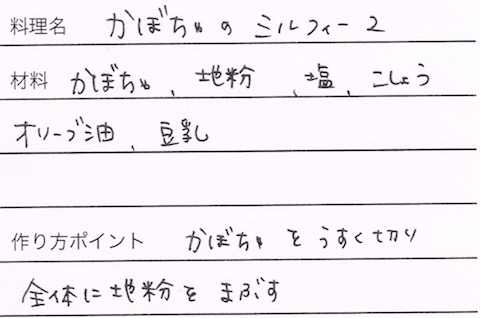 料理名 かぼちゃのミルフィー2
材料 かぼちゃ、地粉、塩、こしょう
オリーブ油、豆乳
作り方ポイント かぼちゃをうすく切り
全体に地粉をまぶす